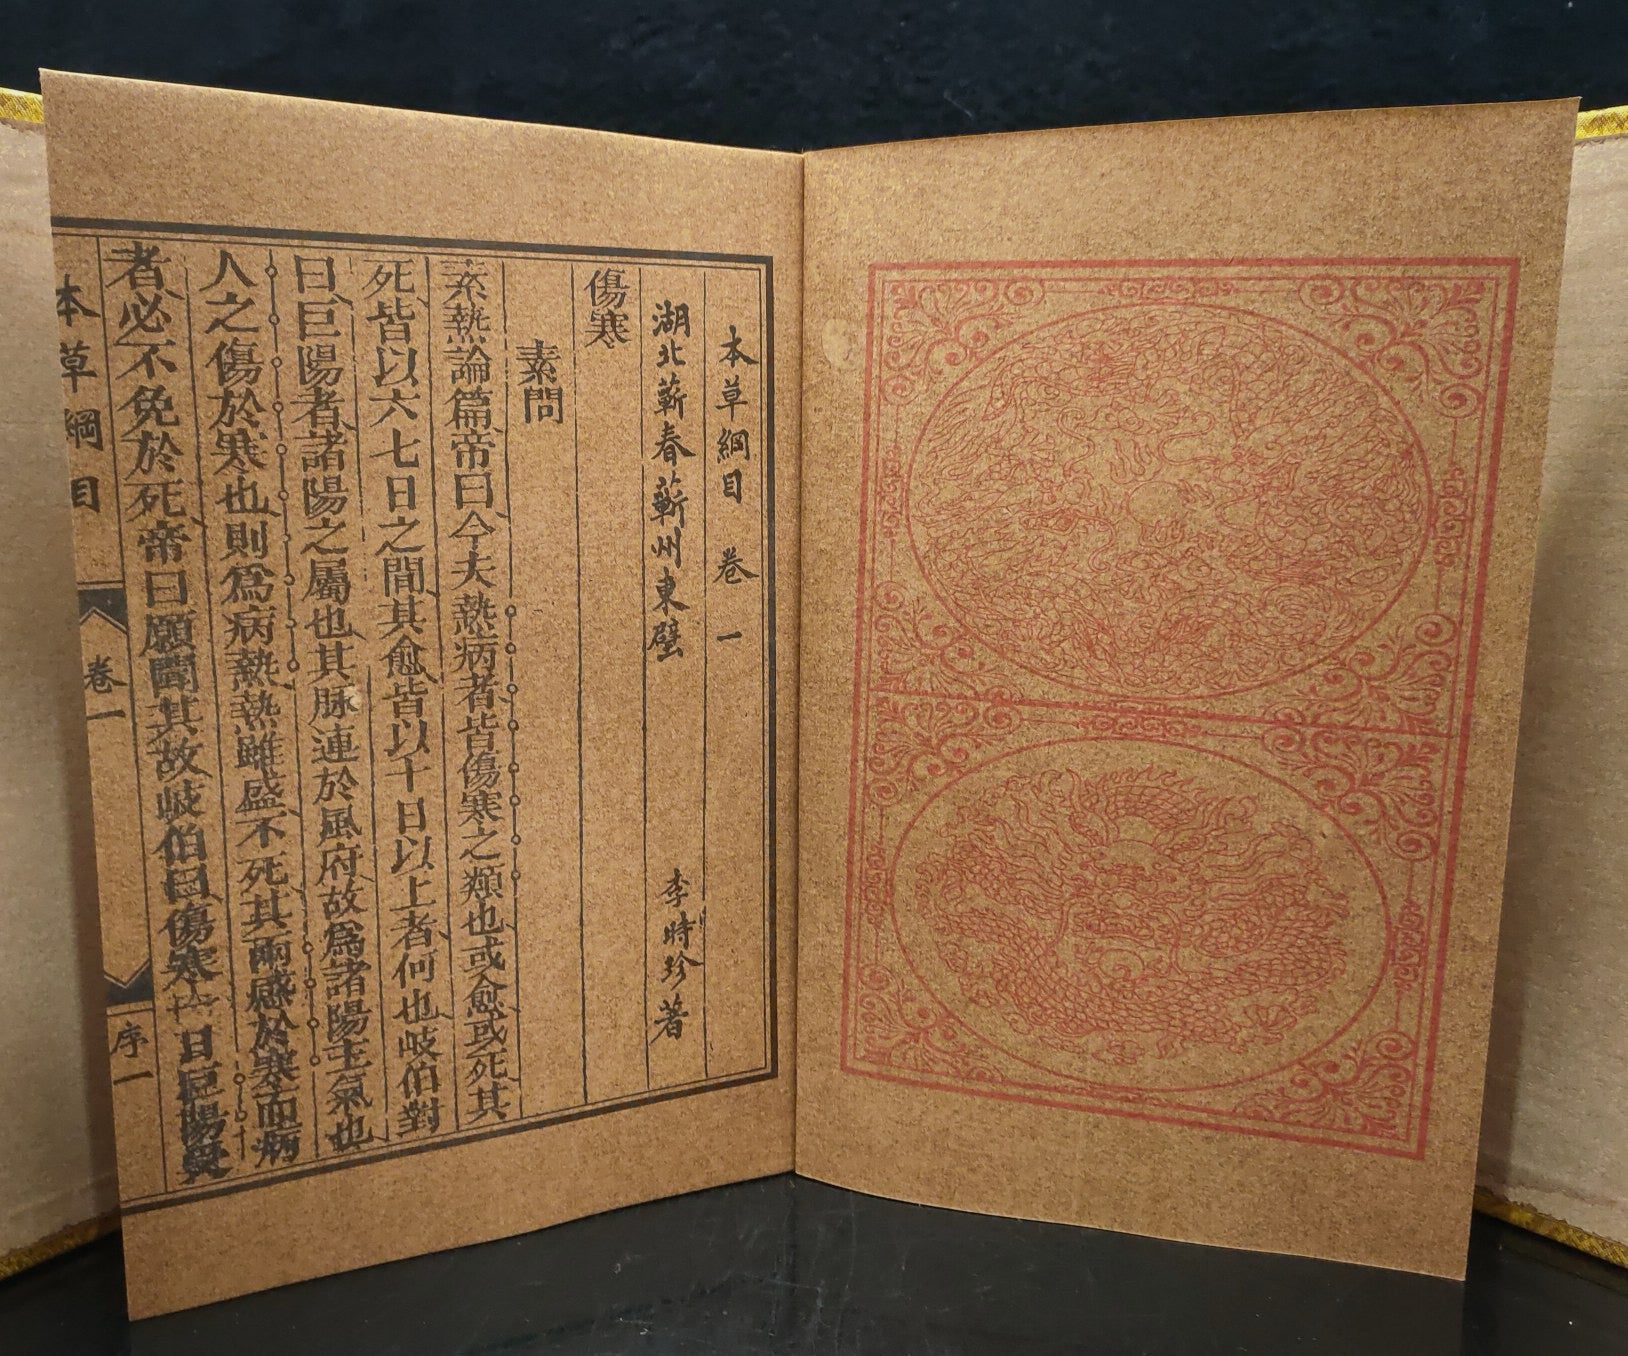 本草綱目 卷一
湖北蘄春蘄州東壁 李時珍著
傷寒
素問
素熱論篇帝曰今夫熱病者皆傷寒之類也或愈或死其
死皆以六七日之間其愈皆以十日以上者何也岐伯對
曰巨陽者諸陽之屬也其脉連於風府故爲諸陽主氣也
人之傷於寒也則爲病熱熱雖盛不死其兩感於寒而病
者必不免於死帝曰願聞其故岐伯曰傷寒一日巨陽受
本草綱目
卷一
序一